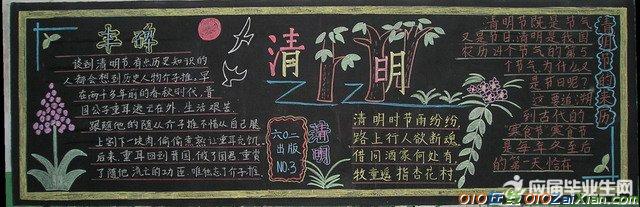 丰碑
谈到清明节有点历史知识的
人都会想到历史人物介子推,早
在两千多年前的春秋时代,晋
国公子重耳逃亡在外,生活艰苦
跟随他的随从介子推不惜从自己腿
上割下一块肉,偷偷煮熟让重耳充饥。
后来,重耳回到晋国,做了国君,重赏
了随他流亡的功臣,唯独忘了介子推
清明
六(二)
出版
NO.3
清明
清明时节雨纷纷,
路上行人欲断魂。
借问酒家何处有
牧童遥指杏花村
清明节的来历
清明节既是节气
又是节日.清明是我国
农历24个节气的第5
个节气.为什么又
是节日呢?
这要追溯
到古代的
寒食节.寒食节
是每年冬至后
的第一天恰在
应届毕业生网
010ZaiXian.com